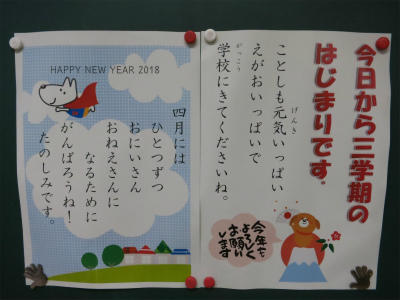 今日から三学期の
はじまりです。
ことしも元気いっぱい
げんき
えがおいっぱいで
学校にきてくださいね。
がっこう
今年も
よろしく
お願い
します
HAPPY NEW YEAR 2018
四月には
ひとつずつ
おにいさん
おねえさんに
なるために
がんばろうね!
たのしみです。